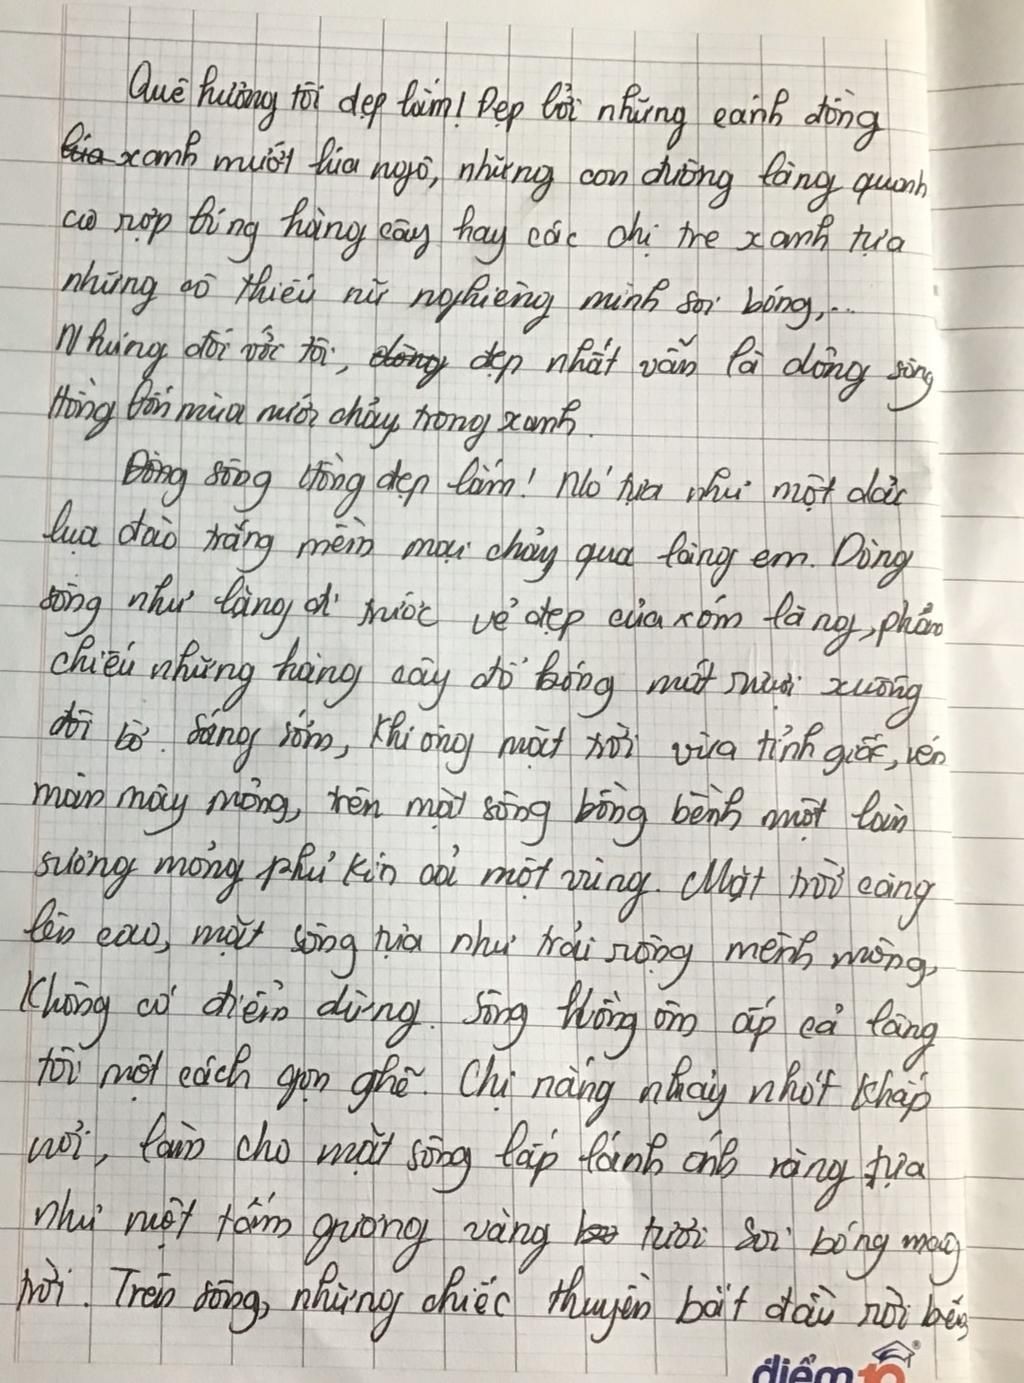 Quê hương tôi đẹp lắm! Đẹp bởi những cánh đồng
lúa xanh mướt lúa ngô, những con đường làng quanh
co rợp bóng hàng cây hay các chị tre xanh tựa
những cô thiếu nữ nghiêng mình soi bóng,...
Nhưng đối với tôi, dòng đẹp nhất vẫn là dòng sông
Hồng bốn mùa nước chảy trong xanh.
Dòng sông Hồng đẹp lắm! Nó tựa như một dải
lụa đào trắng mềm mại chảy qua làng em. Dòng
sông như lặng đi trước vẻ đẹp của xóm làng, phản
chiếu những hàng cây đổ bóng mát rượi xuống
đôi bờ. Sáng sớm, khi ông mặt trời vừa tỉnh giấc, vén
màn mây mỏng, trên mặt sông bồng bềnh một làn
sương mỏng phủ kín cả một vùng. Mặt trời càng
lên cao, mặt sông tựa như trải rộng mênh mông,
không có điểm dừng. Sông Hồng ôm ấp cả làng
tôi một cách gọn ghẽ. Chị nắng nhảy nhót khắp
nơi, làm cho mặt sông lấp lánh ánh vàng tựa
như một tấm gương vàng tươi soi bóng mây
trời. Trên sông, những chiếc thuyền bắt đầu rời bến,
điểm10